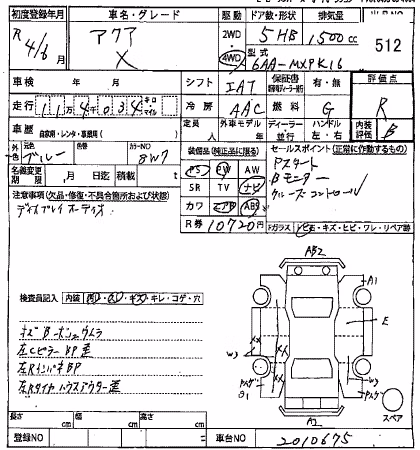 初度登録年月 車名・グレード 駆動 ドア数・形状 排気量
R 4/6 アクア X 2WD 4WD 5 HB 1,500cc 512
型式 6AA-MXPK16
車検 年 月 シフト IAT 保証書 有・無 評価点
走行 11万4千034 キロ マイル 冷房 AAC 燃料 G R
車歴 自家用・レンタ・事業用( ) 定員 人 外車モデル 年 ディーラー 並行 ハンドル 左・右 内装評価 B
外色 元色 カラーNO 装備品(純正品に限る) セールスポイント(正常に作動するもの)
ブルー 8W7 PS PW AW Pスタート
名義変更期限 月 日迄 積載 t SR TV ナビ Bモニター
注意事項(欠品・修復・不具合箇所および状態) カワ エアB ABS クルーズコントロール
ディスプレイオーディオ R券 10720円 Fガラス トビ石・キズ・ヒビ・ワレ・リペア跡
AB2
A1
検査員記入 内装 キレ・コゲ・穴
E
XX
キズ
W3 XX W3
左Cピラー BP歪
左Rインパネ BP
左Rタイヤハウスアウター歪
スペア
A2
長さ cm 幅 cm 高さ cm
登録NO 車台NO 2010675